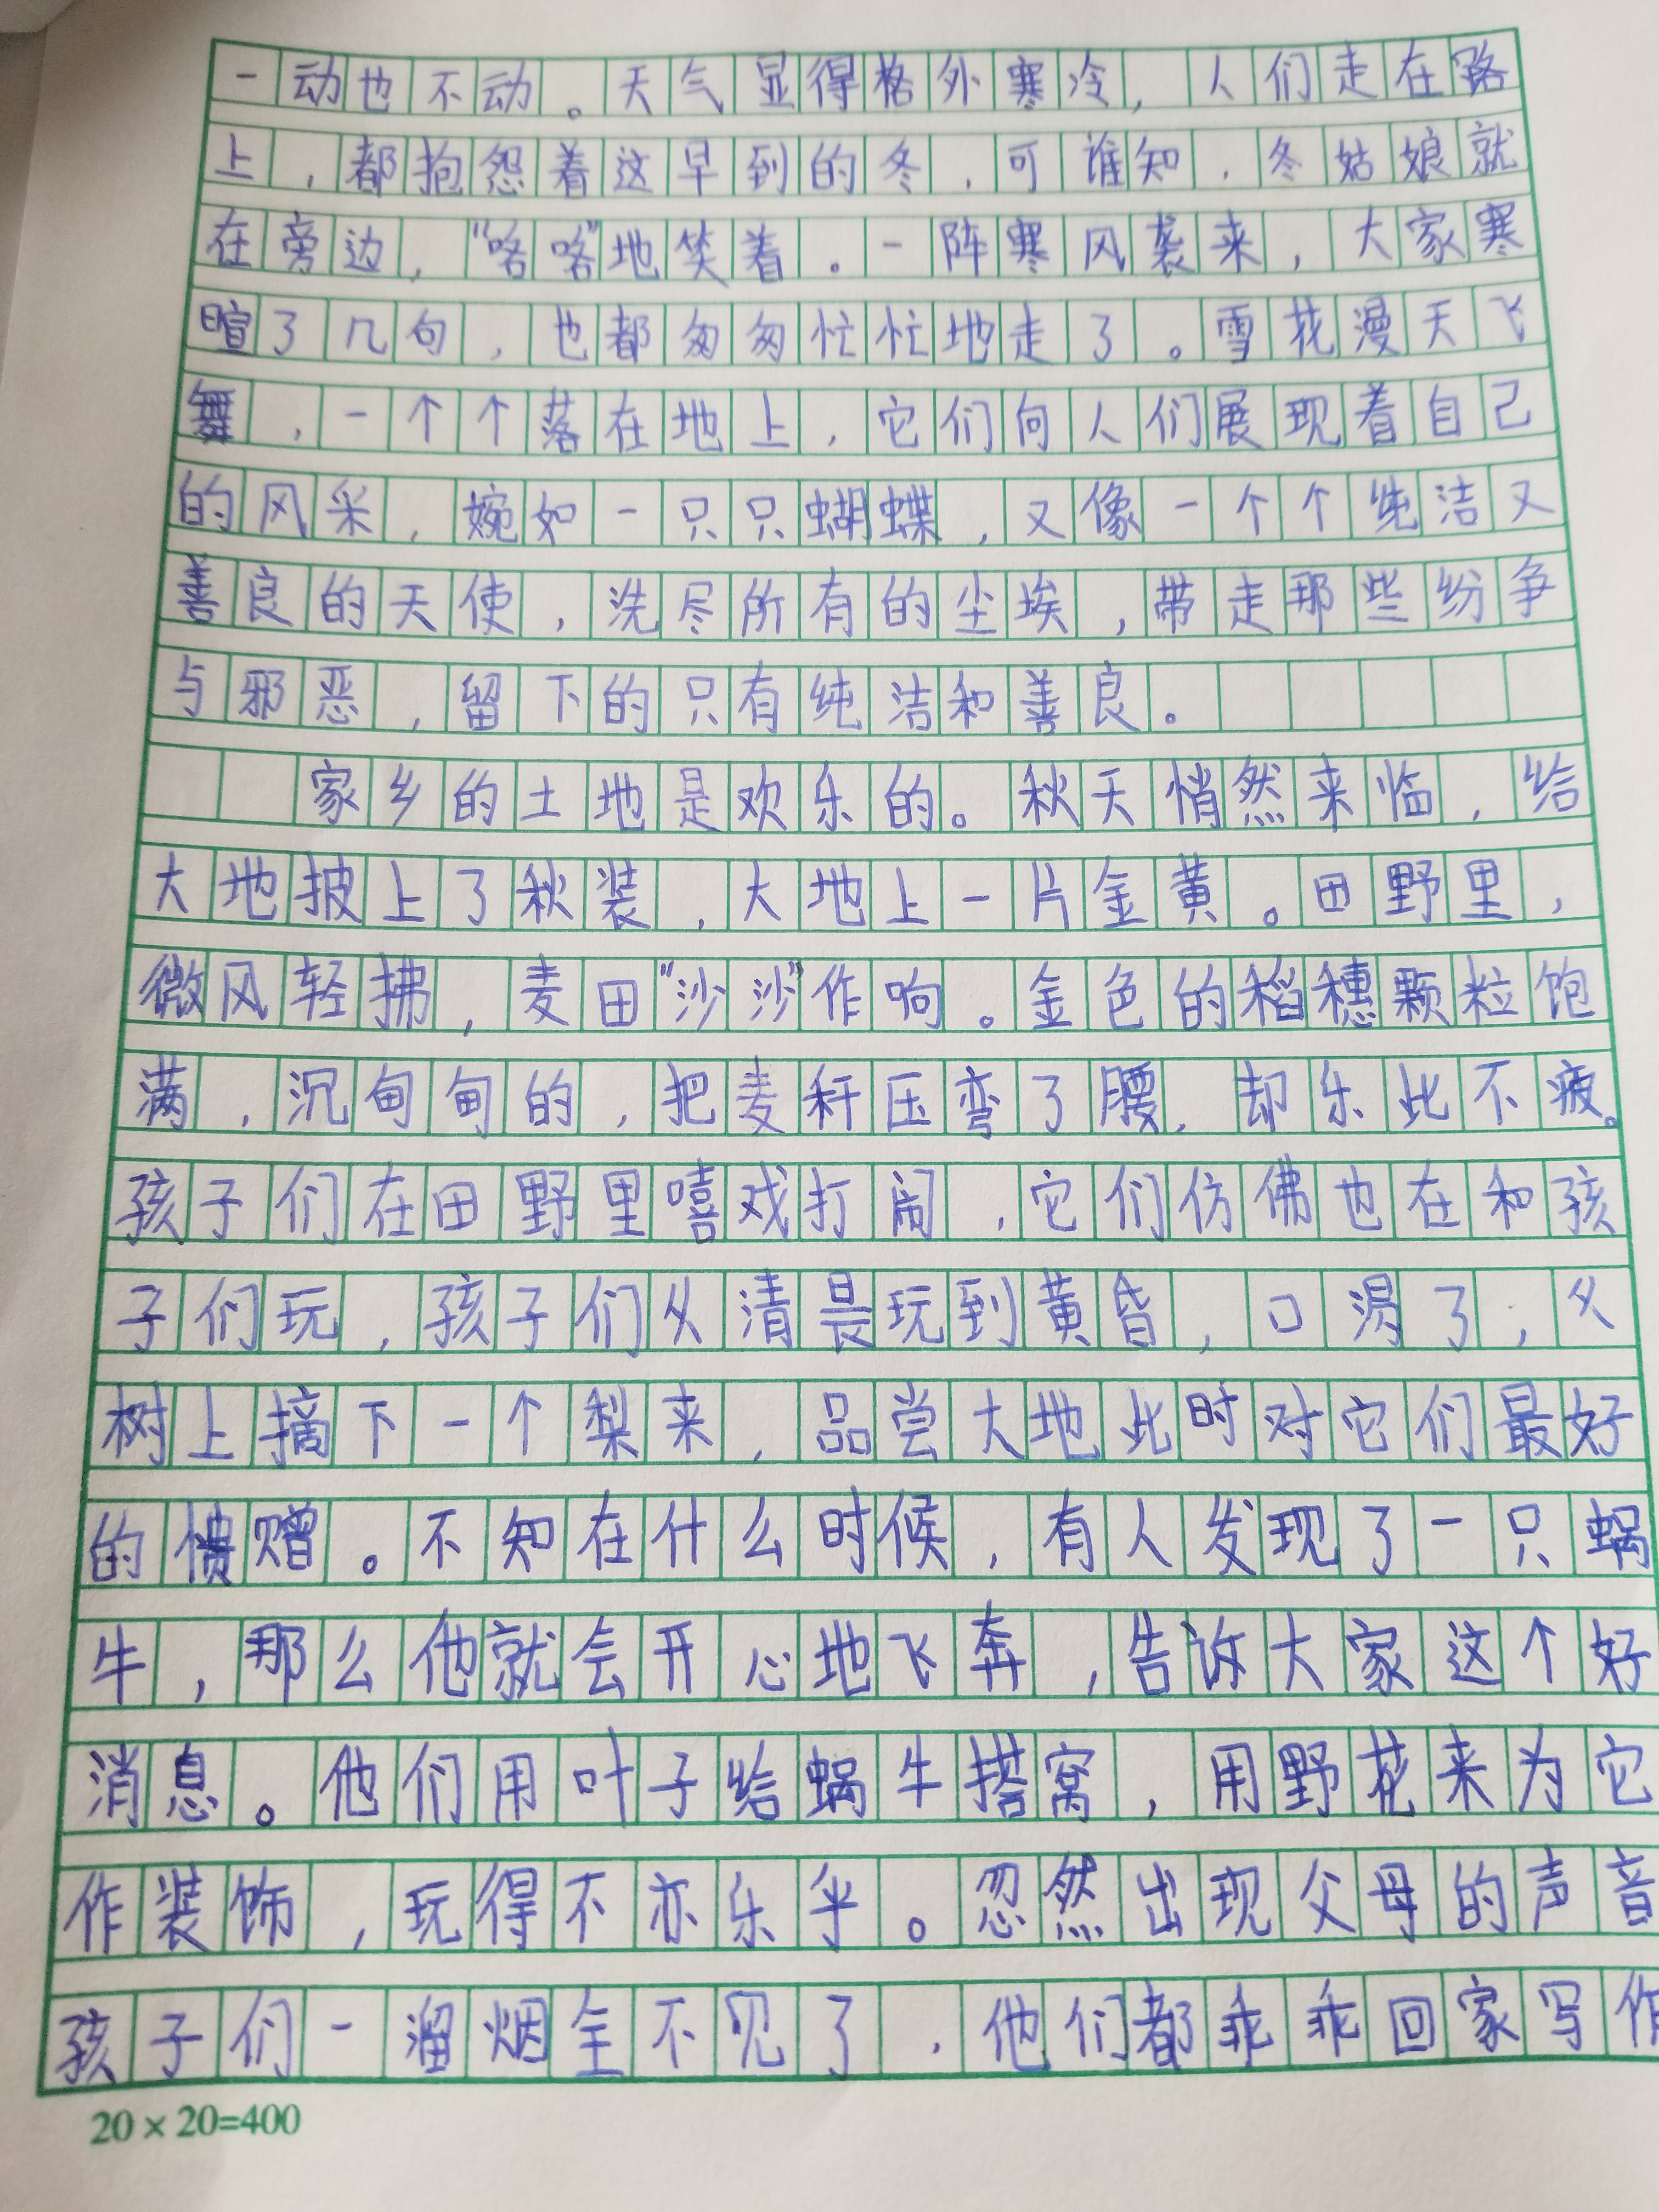 一动也不动。天气显得格外寒冷，人们走在路
上，都抱怨着这早到的冬，可谁知，冬姑娘就
在旁边，“咯咯”地笑着。一阵寒风袭来，大家寒
暄了几句，也都匆匆忙忙地走了。雪花漫天飞
舞，一个个落在地上，它们向人们展现着自己
的风采，婉如一只只蝴蝶，又像一个个纯洁又
善良的天使，洗尽所有的尘埃，带走那些纷争
与邪恶，留下的只有纯洁和善良。
家乡的土地是欢乐的。秋天悄然来临，给
大地披上了秋装，大地上一片金黄。田野里，
微风轻拂，麦田“沙沙”作响。金色的稻穗颗粒饱
满，沉甸甸的，把麦秆压弯了腰，却乐此不疲。
孩子们在田野里嘻戏打闹，它们仿佛也在和孩
子们玩，孩子们从清晨玩到黄昏，口渴了，从
树上摘下一个梨来，品尝大地此时对它们最好
的馈赠。不知在什么时候，有人发现了一只蜗
牛，那么他就会开心地飞奔，告诉大家这个好
消息。他们用叶子给蜗牛搭窝，用野花来为它
作装饰，玩得不亦乐乎。忽然出现父母的声音
孩子们一溜烟全不见了，他们都乖乖回家写作
20×20=400